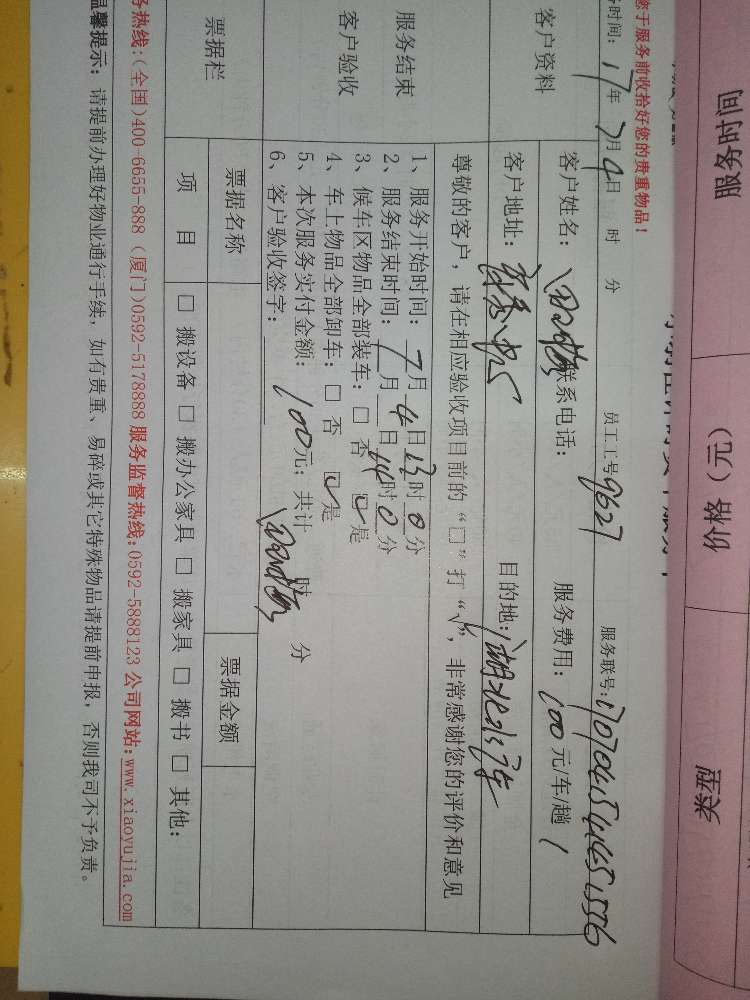 服务时间 价格（元） 类型
您于服务前收拾好您的贵重物品！
务时间：17年7月4日 时 分 员工工号9627 服务联号：
客户资料
客户姓名： 联系电话： 服务费用：100元/车/趟
客户地址： 目的地：
尊敬的客户，请在相应验收项目前的“□”打“√”，非常感谢您的评价和意见
服务结束
客户验收
1、服务开始时间：7月4日13时0分
2、服务结束时间：7月4日14时0分
3、候车区物品全部装车：□ 否 □ 是
4、车上物品全部卸车：□ 否 □ 是
5、本次服务实付金额：100元；共计 时 分
6、客户验收签字：
票据栏
票据名称 票据金额
项 目 □ 搬设备 □ 搬办公家具 □ 搬家具 □ 搬书 □ 其他：
务热线:(全国)400-6655-888 (厦门)0592-5178888 服务监督热线:0592-5888123 公司网站:www.xiaoyujia.com
温馨提示：请提前办理好物业通行手续，如有贵重、易碎或其它特殊物品请提前申报，否则我司不予负责。